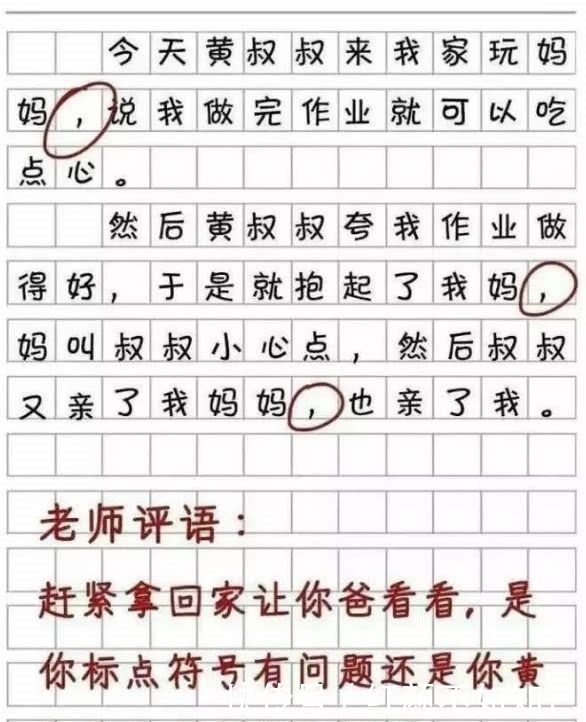 今天黄叔叔来我家玩妈
妈，说我做完作业就可以吃
点心。
然后黄叔叔夸我作业做
得好，于是就抱起了我妈，
妈叫叔叔小心点，然后叔叔
又亲了我妈妈，也亲了我。
老师评语：
赶紧拿回家让你爸看看，是
你标点符号有问题还是你黄